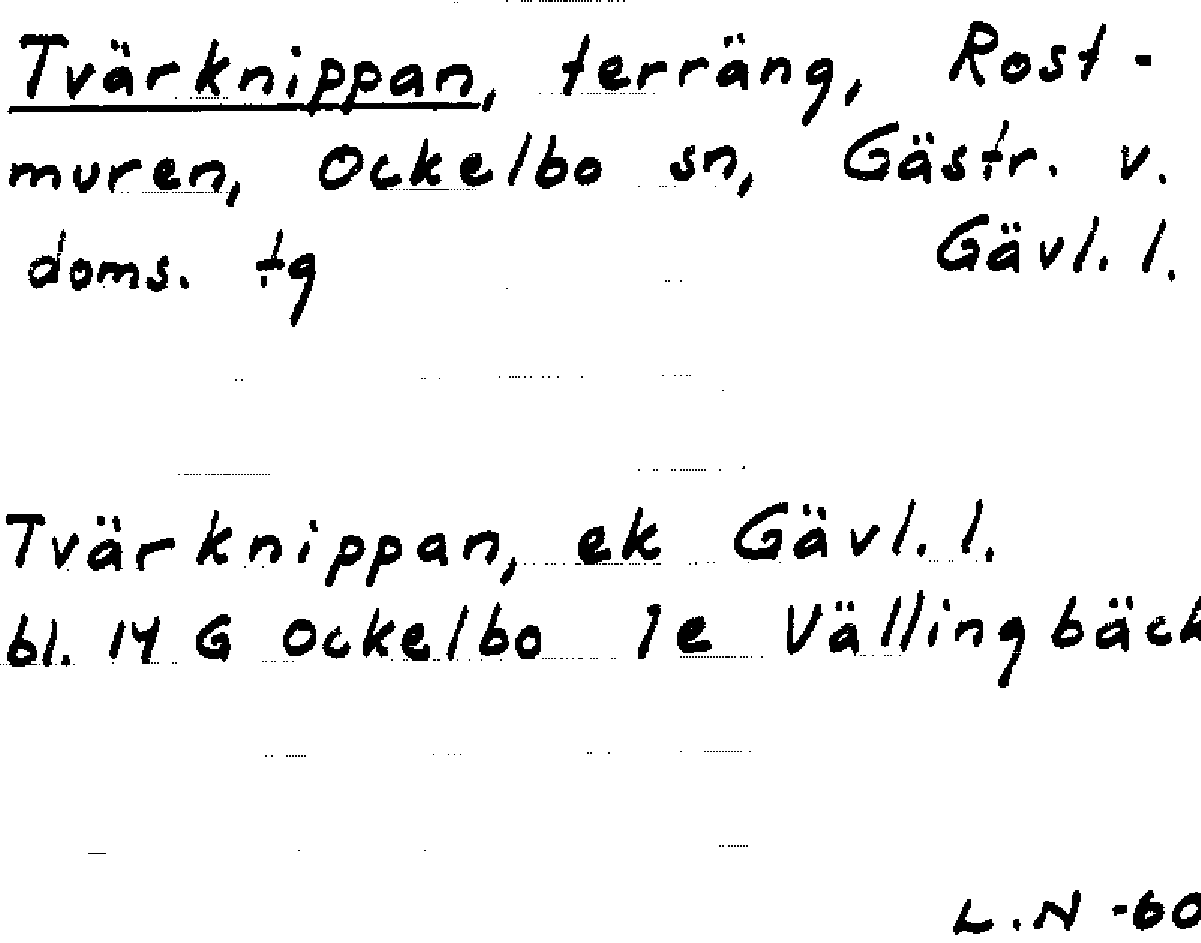 Tvärknippan, terräng, Rost-
muren, Ockelbo sn, Gästr. v.
doms. tg Gävl. l.
Tvärknippan, ek Gävl. l.
bl. 14 G Ockelbo 1e Vällingbäck
L.N -60